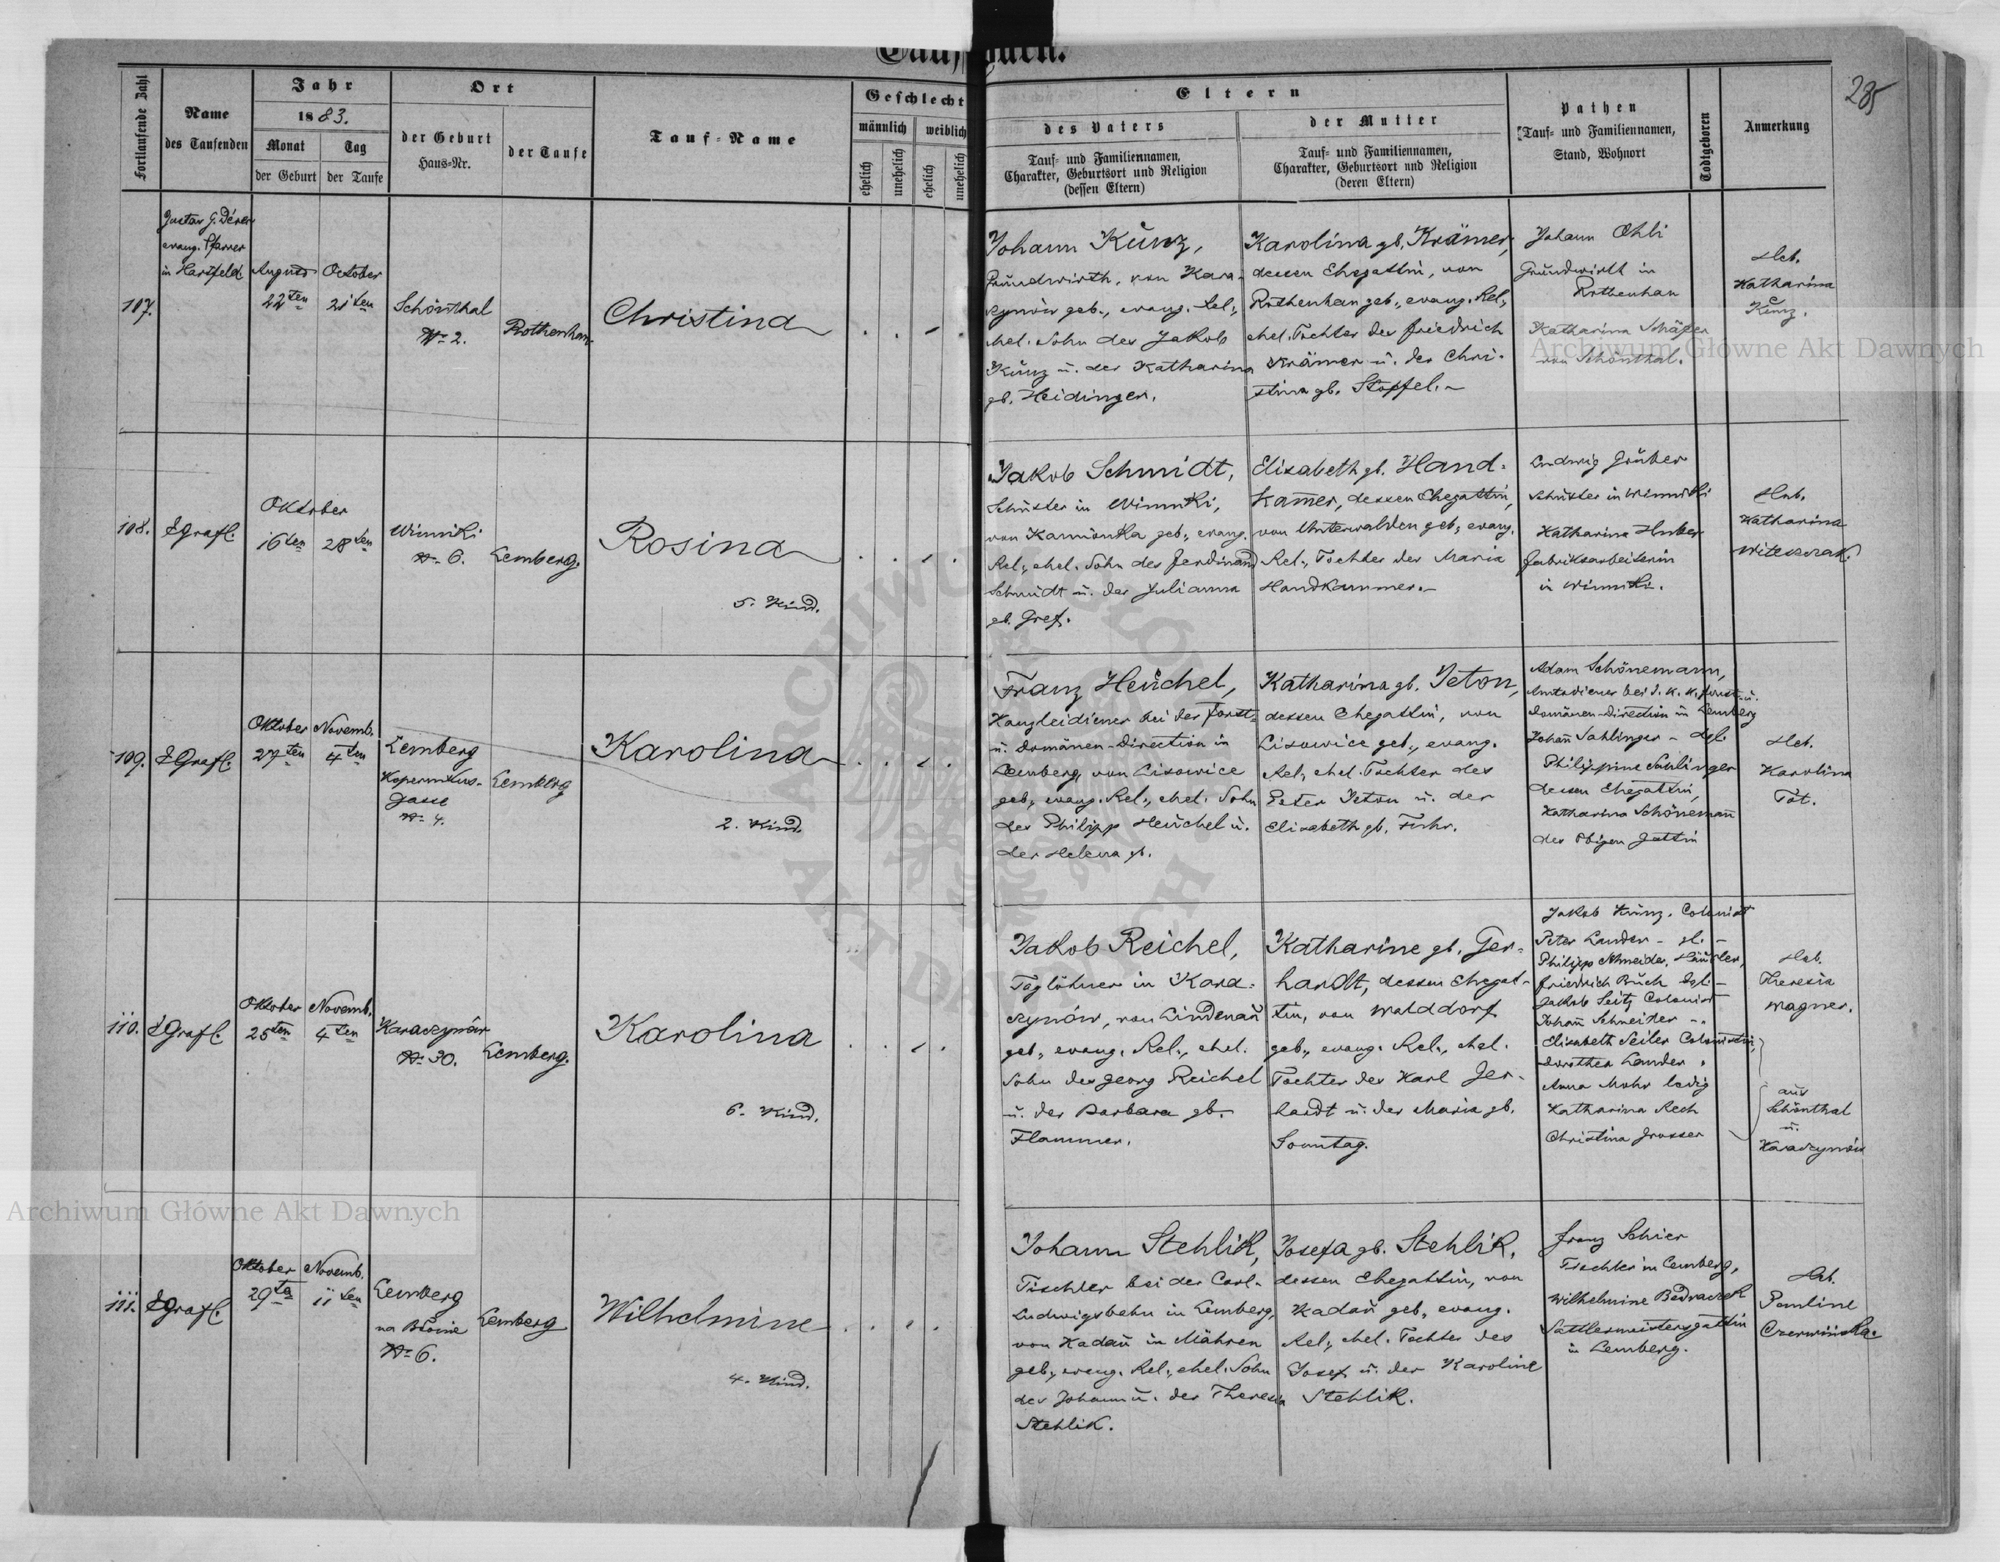 285
Fortlaufende Zahl
Name
des Taufenden
Jahr
1883.
Monat
der Geburt
Tag
der Taufe
Ort
der Geburt
Haus-Nr.
der Taufe
Tauf-Name
Geschlecht
männlich
weiblich
ehelich
unehelich
ehelich
unehelich
Eltern
des Vaters
Tauf- und Familiennamen,
Charakter, Geburtsort und Religion
(dessen Eltern)
der Mutter
Tauf- und Familiennamen,
Charakter, Geburtsort und Religion
(deren Eltern)
Pathen
Tauf- und Familiennamen,
Stand, Wohnort
Todtgeboren
Anmerkung
107.
Gustav G.
evang. Pfarrer
in Hartfeld
August
22ten
October
21ten
Schönthal
No 2.
Rothenhan
Christina
Johann Kunz,
Grundwirth, von Kara-
czynów geb., evang. Rel.,
ehel. Sohn des Jakob
Kunz u. der Katharina
gb. Heidinger.
Karolina gb. Krämer,
dessen Ehegattin, von
Rothenhan geb., evang. Rel.,
ehel. Tochter des Friedrich
Krämer u. der Chri-
stina gb. Stoffel.
Johann Ohli
Grundwirth in
Rothenhan
Katharina Schäfer
von Schönthal.
Heb.
Katharina
Kunz.
108.
Oktober
16ten
28ten
Winniki
No 6.
Lemberg.
Rosina
5. Kind.
Jakob Schmidt,
Schuster in Winniki,
von Kamionka geb., evang.
Rel., ehel. Sohn des Ferdinand
Schmidt u. der Julianna
gb. Gref.
Elisabeth gb. Hand-
kamer, dessen Ehegattin,
von Unterwalden geb., evang.
Rel., Tochter der Maria
Handkammer.
Ludwig Gruber
Schuster in Winniki
Katharina Huber
Fabriksarbeiterin
in Winniki.
Heb.
Katharina
109.
Oktober
27ten
Novemb.
4ten
Lemberg
Kopernikus-
gasse
No 4.
Lemberg
Karolina
2. Kind.
Franz Heuchel,
Kanzleidiener bei der Forst-
u. Domänen-Direction in
Lemberg, von Lisowice
geb., evang. Rel., ehel. Sohn
des Philipp Heuchel u.
der Helena gb.
Katharina gb. Jeton,
dessen Ehegattin, von
Lisowice geb., evang.
Rel., ehel. Tochter des
Peter Jeton u. der
Elisabeth gb. Fuhr.
Adam Schönemann,
Amtsdiener bei d. k. k. Forst- u.
Domänen-Direction in Lemberg
Johann Sahlinger
Philippine Sahlinger
dessen Ehegattin,
Katharina Schönemann
des Obigen Gattin
Heb.
Karolina
110.
Oktober
25ten
Novemb.
4ten
Karaczynów
No 30.
Lemberg.
Karolina
6. Kind.
Jakob Reichel,
Taglöhner in Kara-
czynów, von Lindenau
geb., evang. Rel., ehel.
Sohn des Georg Reichel
u. der Barbara gb.
Flammer.
Katharine gb. Ger-
hardt, dessen Ehegat-
tin, von Walddorf
geb., evang. Rel., ehel.
Tochter des Karl Ger-
hardt u. der Maria gb.
Sonntag.
Jakob Kunz, Colonist
Peter Lander
Philipp Schneider, Häusler,
Friedrich Buch
Jakob Seitz Colonist
Johann Schneider
Elisabeth Seiler Colonistin,
Dorothea Lander
Anna Mohr ledig
Katharina Rech
Christina Grosser
Heb.
Theresia
Wagner.
aus
Schönthal
u.
Karaczynów
111.
Oktober
29ten
Novemb.
11ten
Lemberg
na Błonie
No 6.
Lemberg
Wilhelmine
4. Kind.
Johann Stehlik,
Tischler bei der Carl-
Ludwigsbahn in Lemberg,
von Kadau in Mähren
geb., evang. Rel., ehel. Sohn
des Johann u. der Theresia
Stehlik.
Josefa gb. Stehlik,
dessen Ehegattin, von
Kadau geb., evang.
Rel., ehel. Tochter des
Josef u. der Karoline
Stehlik.
Franz Schier
Tischler in Lemberg,
Wilhelmine
Sattlermeistersgattin
in Lemberg.
Heb.
Pauline
Czerwinska.
Archiwum Główne Akt Dawnych
Archiwum Główne Akt Dawnych